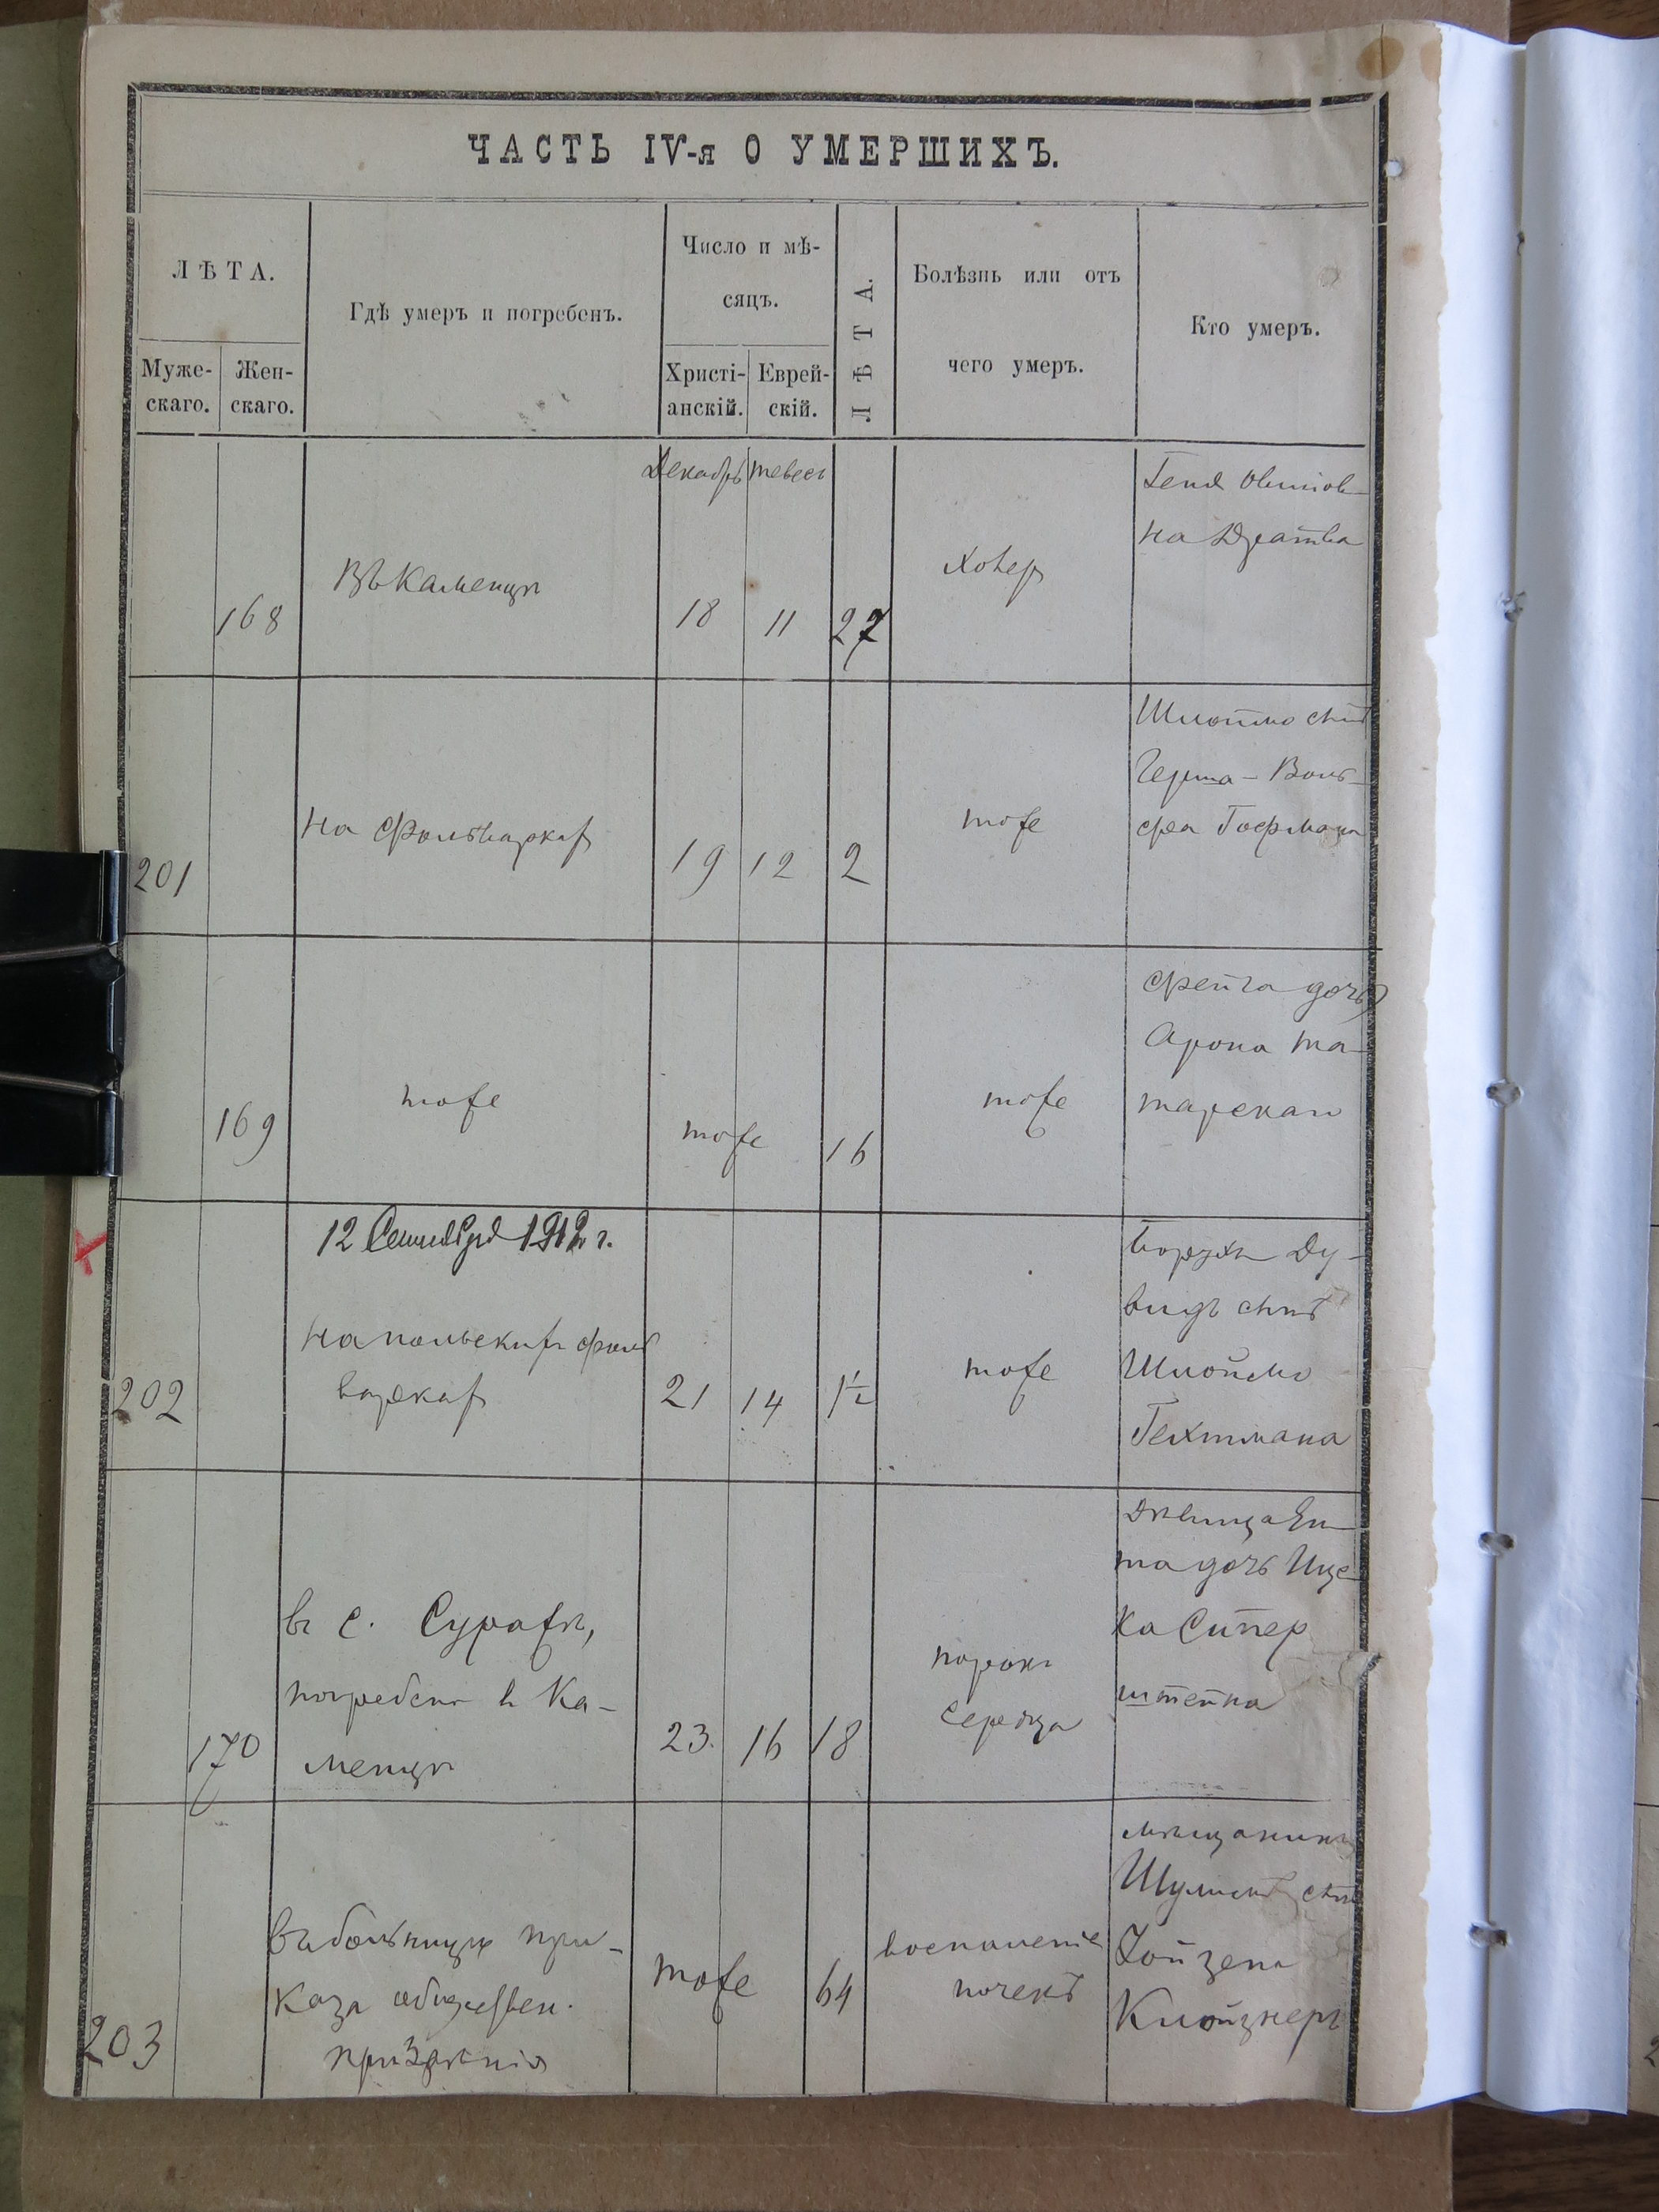 ЧАСТЬ IV-я О УМЕРШИХЪ.
ЛѢТА.
Муже-
скаго.
Жен-
скаго.
Гдѣ умеръ и погребенъ.
Число и мѣ-
сяцъ.
Христі-
анскій.
Еврей-
скій.
ЛѢТА.
Болѣзнь или отъ
чего умеръ.
Кто умеръ.
Декабрь тевесъ
168
Въ Каменцѣ
18
11
27
на Дратва
201
на Фольварках
19
12
2
тоже
Шлоймо сынъ
Герша - Воль-
фа Гофмана
169
тоже
тоже
16
тоже
Фейга дочь
Арона Та-
тарскаго
12 Сентября 1912 г.
202
на польских фоль
варках
21
14
1½
тоже
Борухъ Ду-
видъ сынъ
Шлоймо
Гехтмана
170
в с. Суражѣ,
погребена в Ка-
менцѣ
23
16
18
порокъ
сердца
дѣвица Ен-
та дочь Ице-
ка Сипер
штейна
203
въ больницѣ при-
каза обществен.
призрѣнія
тоже
64
воспаленіе
почекъ
мѣщанинъ
сынъ
Клойзнеръ